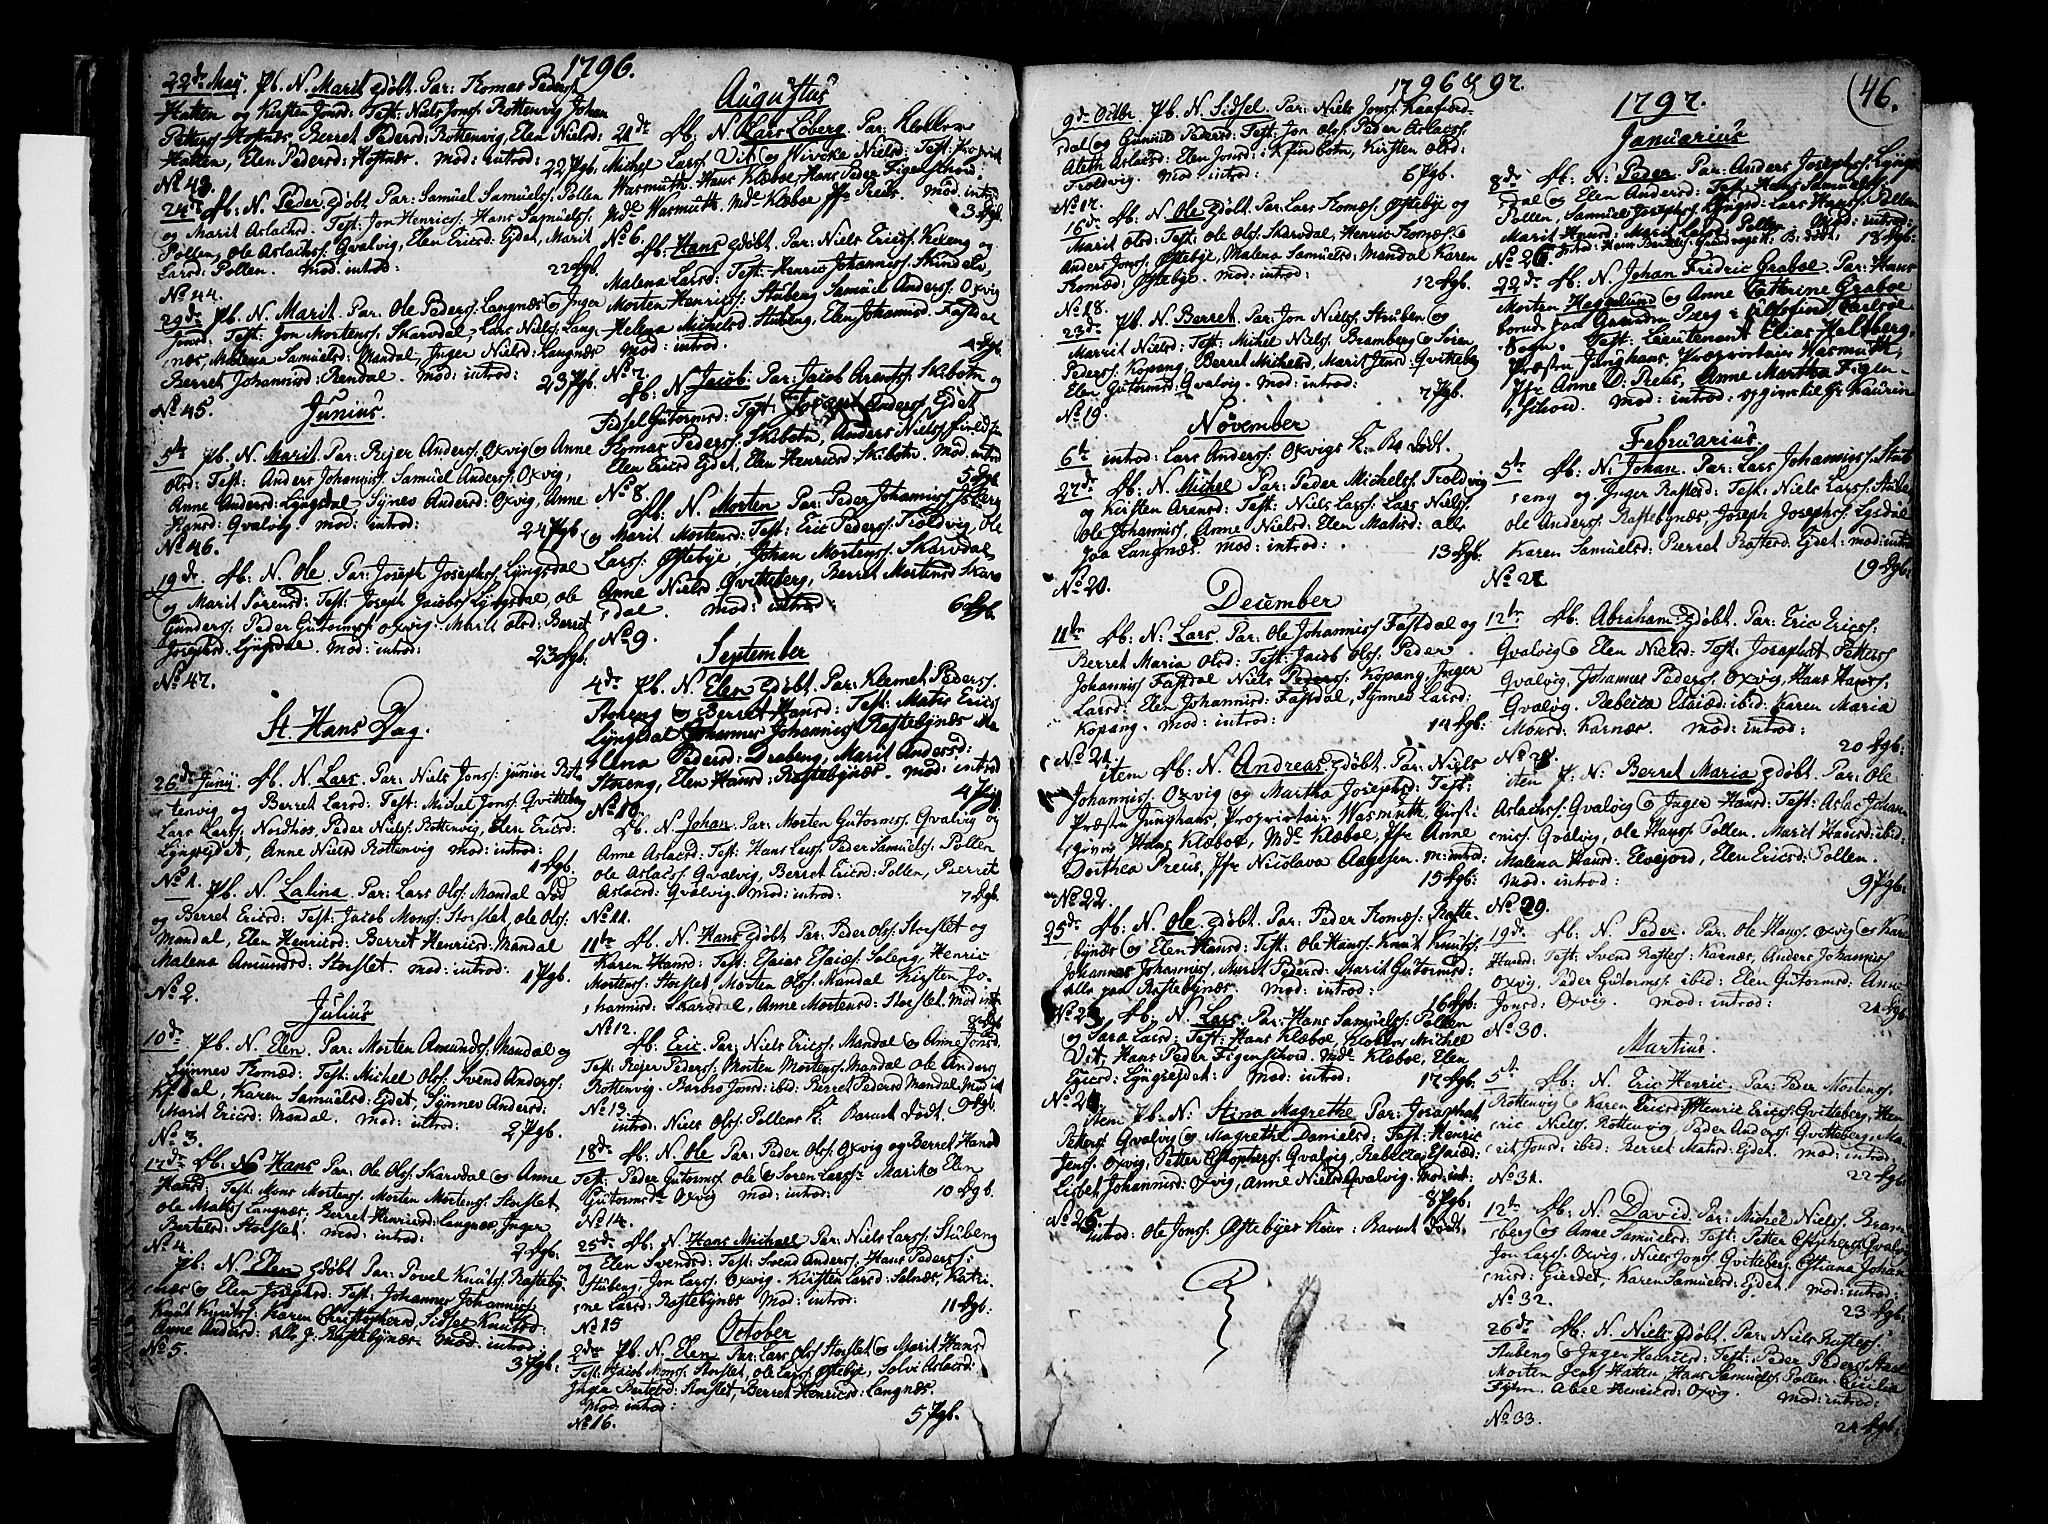 1796.
22de Maij. Pb. N. Marit døbt. Par: Thomas Peders:
Hatten og Kirsten Jonsd: Test: Niels Jons: Rottenvig Johan
Petters: Hofnæs, Berret Pedersd: Rottenvig, Elen Nielsd:
Hatten, Elen Pedersd: Hofnæs. mod: introd: 22 Pgb.
No 43.
24de Db: N. Peder døbt Par: Samuel Samuels: Pollen
og Marit Aslachsd: Test: Jon Henrics: Hans Samuels:
Pollen, Ole Aslachs: Qvalvig, Elen Ericsd: Ejdet, Marit
Larsd: Pollen. mod: introd: 22 Dgb.
No 44.
29de Pb. N. Marit. Par: Ole Peders: Langnæs og Inger
Jonsd: Test: Jon Mortens: Skarvdal, Lars Niels: Lang-
næs, Malena Samuelsd: Mandal, Inger Nielsd: Langnæs
Berret Johannisd: Rendal. mod: introd: 23 Pgb.
No 45.
Junius.
5te Pb. N. Marit Par: Rejer Anders: Oxvig og Anne
Olsd: Test: Anders Johannis: Samuel Anders: Oxvig,
Anne Andersd: Lyngsdal, Synnev Andersd: Oxvig, Anne
Hansd: Qvalvig mod: introd: 24 Pgb:
No 46.
19de Db. N. Ole. Par: Joseph Josephs: Lyngsdal
og Marit Sørensd: Test: Joseph Jacobs: Lyngsdal, Ole
Gunders: Peder Gutorms: Oxvig. Marit Olsd: Berret
Josephsd: Lyngsdal. mod: introd: 23 Dgb.
No 47.
St. Hans Dag.
26de Junij Db. N. Lars. Par: Niels Jons: junior Rot-
tenvig og Berret Larsd: Test: Michel Jons: Qvitteberg
Lars Lars: Nordhos, Peder Niels: Rottenvig, Elen Ericsd:
Lyngsejdet, Anne Nielsd Rottenvig mod: introd: 1 Dgb.
No 1.
Pb. N. Lalina. Par: Lars Ols: Mandal Død
og Berret Ericsd: Test: Jacob Mons: Storslet, Ole Ols:
Mandal, Elen Henricsd: Berret Henricsd: Mandal
Malena Amundsd: Storslet. mod: introd: 1 Pgb.
No 2.
Julius
10de Pb. N. Elen. Par: Morten Amunds: Mandal og
Synnev Thomæd: Test: Michel Ols: Svend Anders:
Kjosdal, Karen Samuelsd: Ejdet, Synnev Andersd:
Marit Ericsd: Mandal. mod: introd: 2 Pgb.
No 3.
17de Db. N. Hans Par: Ole Ols: Skarvdal og Anne
Hansd: Test: Mons Mortens: Morten Mortens: Storslet
Ole Matis: Langnæs, Berret Henricsd: Langnæs, Inger
Bertelsd: Storslet. mod: introd: 2 Dgb.
No 4.
Pb. N. Elen døbt Par: Povel Knuts: Rasteby-
næs og Elen Josephsd: Test: Johannes Johannis:
Knut Knuts: Karen Christophersd, Sidsel Knutsd:
Anne Andersd: alle j: Rastebynæs. mod: introd: 3 Pgb.
No 5.
Augustus
21de Db. N. Klars Løberg. Par: Klokker
Michel Lars: Vit og Wivicke Nielsd: Test: Proprit:
Wasmuth. Hans Klæboe, Hans Peder Figenschou.
Mdc Wasmuth. Mdc Klæboe Jfr Preus. mod: introd
3 Dgb.
No 6.
Db. Hans døbt. Par: Niels Erics: Kekeng og
Malena Larsd: Test: Henric Johannis: Skindelv,
Morten Henrics: Stubeng Samuel Anders: Oxvig
Helena Michelsd Stubeng, Elen Johannisd Fastdal
mod: introd. 4 Dgb.
No 7.
Db. N. Jacob: Par: Jacob Arents: Skibotn og
Sidsel Gutormsd: Test: Anders Ejdet
Thomas Peders: Skibotn, Anders Niels:
Elen Ericsd Ejdet, Elen Henricsd: Skibotn. mod: introd
5 Dgb.
No 8.
Db. N. Morten Par: Peder Johannis:
og Marit Mortensd: Test: Eric Peders: Troldvig Ole
Lars: Østebye, Johan Mortens: Skarvdal
Anne Nielsd Qvitteberg, Berret Mortensd Skarv-
dal. mod: introd: 6 Dgb.
No 9.
September
4de Pb. N. Elen døbt. Par: Klemet Peders:
Storeng og Berret Hansd: Test: Matis Erics
Lyngsdal Johannes Johannis Rastebynæs Ma-
lena Pedersd: Drabeng, Marit Andersd:
Storeng, Elen Hansd: Rastebynæs. mod: introd
4 Pgb
No 10.
Db. N. Johan. Par: Morten Gutorms: Qvalvig og
Anne Aslacsd: Test: Hans Lars: Peder Samuels: Pollen
Ole Aslacs: Qvalvig, Berret Ericsd: Pollen, Berret
Aslacsd: Qvalvig. mod: introd: 7 Dgb.
No 11.
11te Db. N. Hans døbt Par: Peder Ols: Storslet og
Karen Hansd: Test: Esaias Esaiæs: Soleng, Henric
Mortens: Storslet, Morten Ols: Mandal Kirsten Jo-
hannisd: Skarvdal, Anne Mortensd: Storslet. mod int
8 Dgb
No 12.
Db. Eric. Par: Niels Erics: Mandal og Anne Jonsd
Test: Rejer Peders: Morten Mortens: Mandal Ole Anders:
Rottenvig. Barbro Jonsd: ibid: Berret Pedersd Mandal. mod int
9 Dgb.
No 13.
introd: Niels Ols: Pollens K: Barnet Død:
18de Db: N: Ole Par: Peder Ols: Oxvig og Berret Hansd
Test: Peder Gutorms: Ole og Søren Lars: Marit og Elen
Gutormsdtr Oxvig mod: introd: 10 Dgb.
No 14.
25de Db. N. Hans Michael Par: Niels Lars: Stubeng
og Elen Svendsd: Test: Svend Anders: Hans Peders:
Stubeng, Jon Lars: Oxvig. Kirsten Larsd: Selnæs, Katri-
ne Larsd: Rastebynæs mod: introd: 11 Dgb:
No 15
October
2den Pb. N. Elen Par: Lars Ols: Storslet og Marit Hansd
Test: Jacob Mons: Storslet, Ole Lars: Østebye, Solvi Aslacsd:
Inger Bertelsd: Storslet, Berret Henricsd: Langnæs.
mod: introd: 5 Pgb.
No 16.
1796 & 97.
46.
9de Octbr. Pb. N. Sidsel. Par: Niels Jons: Kaafiord-
dal og Gunild Pedersd: Test: Jon Ols: Peder Aslacs:
Aleth Aslacsd: Elen Jonsd: Kjindbotn, Kirsten Olsd:
Troldvig. mod: introd: 6 Pgb.
No 17.
16de Db: N. Ole døbt. Par: Lars Thomæs: Østebye og
Marit Olsd: Test: Ole Ols: Skarvdal, Henric Thomæs: og
Anders Jons: Østebye, Malena Samuelsd: Mandal Karen
Thomæd: Østebye. mod: introd: 12 Dgb.
No 18.
23de Pb. N. Berret. Par: Jon Niels: Struben og
Marrit Nielsd: Test: Michel Niels: Bramberg og Søren
Peders: Kopang, Berret Michelsd, Marit Jonsd: Qvitteberg
Elen Gutormsd: Qvalvig. mod: introd: 7 Pgb.
No 19.
November
6te introd: Lars Anders: Oxvigs K. Ba Dødt.
27de Db: N. Michel Par: Peder Michels: Troldvig
og Kirsten Arensd: Test: Niels Lars: Lars Niels:
Ole Johannis:, Anne Nielsd: Elen Matisd: alle
paa Langnæs. mod: introd: 13 Dgb:
No 20.
December
11te Db. N: Lars. Par: Ole Johannis: Fastdal og
Berret Maria Olsd: Test: Jacob Ols: Peder
Johannis: Fastdal Niels Peders: Kopang, Inger
Larsd: Elen Johannisd: Fastdal, Synnev Larsd:
Kopang. mod: introd: 14 Dgb:
No 21.
item Db. N. Andreas døbt Par: Niels
Johannis: Oxvig og Martha Josephsd: Test:
Præsten Junghans, Proprietair Wasmuth, Giest-
giver Hans Klæboe, Mdc Klæboe, Jfr Anne
Dorthea Preus, Jfr Nicolava Aagesen. m: introd
15 Dgb:
No 22.
25de Db. N. Ole døbt. Par: Peder Thomæs: Raste-
bynæs og Elen Hansd: Test: Ole Hans: Knut Knuts:
Johannes Johannis:, Marit Pedersd: Marit Gutormsd:
alle paa Rastebynæs. mod: introd: 16 Dgb:
No 23.
Db. N. Lars Par: Hans Samuels: Pollen
og Sara Larsd: Test: Hans Klæboe, Klokker Michel
Vit, Hans Peder Figenschou. Mdc Klæboe, Elen
Ericsd: Lyngsejdet: mod: introd: 17 Dgb:
No 24.
item Pb. N: Stina Magrethe Par: Josaphat
Peters: Qvalvig og Magretha Danielsd: Test: Henric
Jens: Oxvig, Petter Christophers: Qvalvig, Rebecca Esaiæd:
Lisbet Johannisd: Oxvig, Anne Nielsd Qvalvig. mod: int:
8 Pgb.
No 25.
introd: Ole Jons: Østebyes Kone: Barnet Dødt.
1797.
Januarius
8de Db. N. Peder. Par: Anders Josephs: Lyngs-
dal og Elen Andersd: Test: Hans Samuels:
Pollen, Samuel Josephs: Lyngsd: Lars Hans: Pollen
Marit Hansd: Marit Larsd: Pollen mod: introd:
18 Dgb:
No 26.
introd: Hans Bertels: Grundvagets K. B: dødt:
22de Db: N. Johan Fridric Graboe. Par: Hans
Morten Hegelund og Anne Cathrine Graboe
Test: Lieutenant Elias Heltberg,
Præsten Junghans, Proprietair Wasmuth,
Jfr Anne D. Preus, Anne Martha Figen-
schou. mod: introd:
Februarius
5te Db: N: Johan. Par: Lars Johannis: Stub-
eng og Inger Rastersd: Test: Niels Lars: Stubeng
Ole Anders: Rastebynæs, Joseph Josephs: Lyngsdal
Karen Samuelsd: Berret Rastersd: Ejdet: mod: introd
19 Dgb:
No 27
12te Db: Abraham døbt. Par: Eric Erics:
Qvalvig og Elen Nielsd: Test: Josaphat Petters:
Qvalvig, Johannes Peders: Oxvig, Hans Hans:
Qvalvig. Rebecca Esaiæd: ibid: Karen Maria
Monsd: Karnæs. mod: introd: 20 Dgb:
No 28.
item P. N: Berret Maria døbt. Par: Ole
Aslacs: Qvalvig og Inger Hansd: Test: Aslac Johan-
nis: Qvalvig, Ole Hans: Pollen. Marit Hansd: ibid:
Malena Hansd: Elvejord, Elen Ericsd: Pollen.
mod: introd: 9 Pgb:
No 29.
19de Db: N. Peder. Par: Ole Hans: Oxvig og Karen
Hansd: Test: Svend Rasters: Karnæs, Anders Johannis:
Oxvig, Peder Gutorms: ibid: Elen Gutormsd: Anne
Jonsd: Oxvig. mod: introd: 21 Dgb.
No 30.
Martius.
5te Db: N. Eric Henric. Par: Peder Mortens:
Rottenvig og Karen Ericsd: Test: Henric Erics: Qvitteberg, Hen-
ric Niels: Rottenvig, Peder Anders: Qvitteberg, Ma-
rit Jonsd: ibid: Berret Matisd: Ejdet. mod: introd:
22 Dgb:
No 31.
12te Db. N. David. Par: Michel Niels: Bram-
berg og Anne Samuelsd: Test: Petter Christophers: Qvalvig
Jon Lars: Oxvig, Niels Jons: Qvitteberg, Christiana Johan-
nisd: Gierdet, Karen Samuelsd: Ejdet. mod: introd:
23 Dgb:
No 32.
26de Db: N. Niels døbt. Par: Niels Rasters:
Stubeng og Inger Henricsd: Test: Peder Peders:
Morten Jens: Hatten, Hans Samuels: Pollen. Cicilia
Abel Henricsd: Oxvig. mod: introd:
24 Dgb.
No 33.